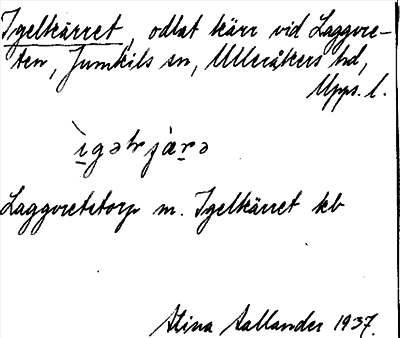 Igelkärret, odlat kärr vid Laggvre-
ten, Jumkils sn, Ulleråkers hd,
Upps. l.
Laggvretstorp m. Igelkärret kb
Stina Aallander 1937.